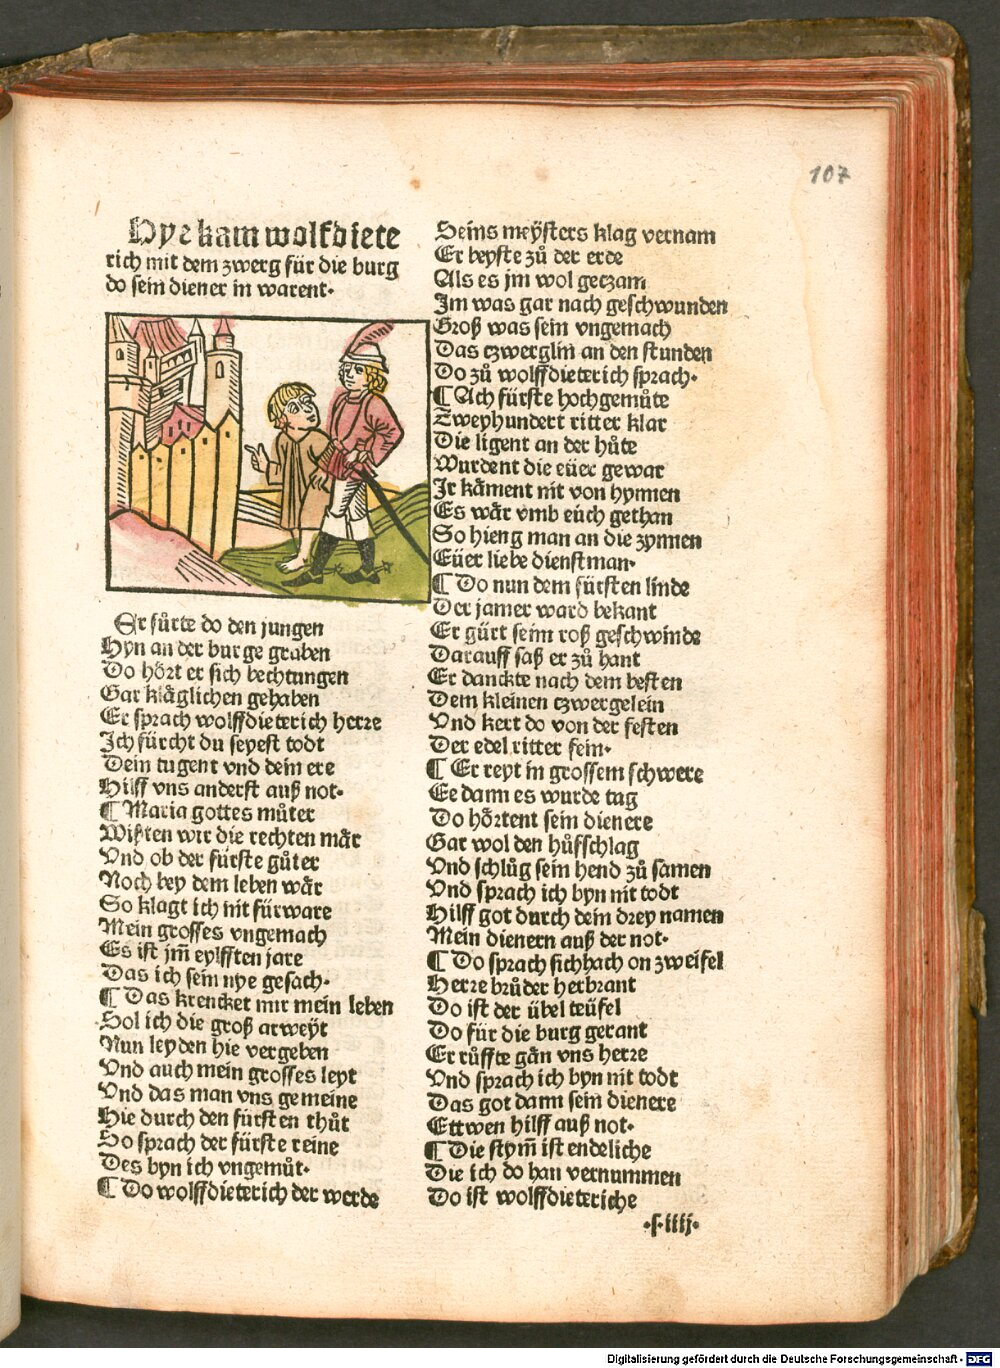 107
Hye kam wolfdiete
rich mit dem zwerg für die burg
do sein diener in warent.
Er fůrte do den jungen
Hyn an der burge graben
Do hört er sich bechtungen
Gar kläglichen gehaben
Er sprach wolffdieterich herre
Ich fürcht du seyest todt
Dein tugent vnd dein ere
Hilff vns anderst auß not.
¶ Maria gottes můter
Wißten wir die rechten mär
Vnd ob der fürste gůter
Noch bey dem leben wär
So klagt ich nit fürware
Mein grosses vngemach
Es ist jm̄ eylfften jare
Das ich sein nye gesach.
¶ Das krencket mir mein leben
Sol ich die groß arweÿt
Nun leyden hie vergeben
Vnd auch mein grosses leyt
Vnd das man vns gemeine
Hie durch den fürsten thůt
So sprach der fürste reine
Des byn ich vngemůt.
¶ Do wolffdieterich der werde
Seins meÿsters klag vernam
Er beyste zů der erde
Als es jm wol geczam
Im was gar nach geschwunden
Groß was sein vngemach
Das czwerglin an den stunden
Do zů wolffdieterich sprach.
¶ Ach fürste hochgemůte
Zweyhundert ritter klar
Die ligent an der hůte
Wurdent die eüer gewar
Ir käment nit von hynnen
Es wär vmb eüch gethan
So hieng man an die zynnen
Eüer liebe dienstman.
¶ Do nun dem fürsten linde
Der jamer ward bekant
Er gürt seim roß geschwinde
Darauff saß er zů hant
Er danckte nach dem besten
Dem kleinen czwergelein
Vnd kert do von der festen
Der edel ritter fein.
¶ Er reyt in grossem schwere
Ee dann es wurde tag
Do hörtent sein dienere
Gar wol den hůfschlag
Vnd schlůg sein hend zů samen
Vnd sprach ich byn nit todt
Hilff got durch dein drey namen
Mein dienern auß der not.
¶ Do sprach sich hach on zweifel
Herre brůder herbrant
Do ist der übel teüfel
Do für die burg gerant
Er růffte gän vns herre
Vnd sprach ich byn nit todt
Das got dann sein dienere
Ettwen hilff auß not.
¶ Die stym̄ ist endeliche
Die ich do han vernummen
Do ist wolffdieteriche
.s.iiij.
Digitalisierung gefördert durch die Deutsche Forschungsgemeinschaft - DFG